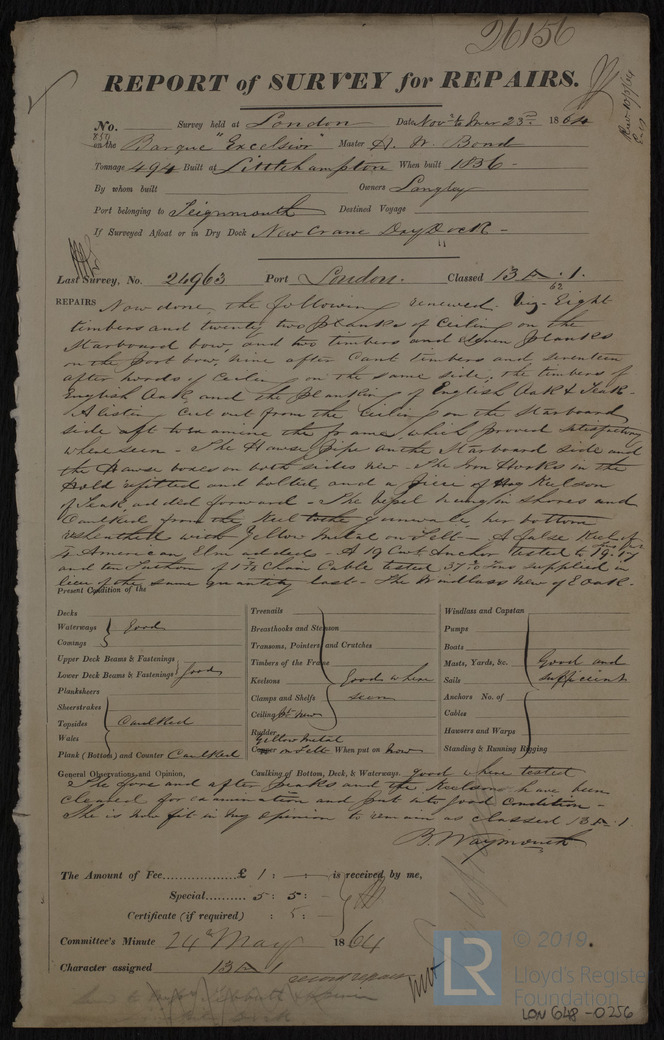 26156
REPORT of SURVEY for REPAIRS.
No. Survey held at London Date Nov to Mar 23rd 1864
on the Barque "Excelsior" Master H. W. Bond
Tonnage 494 Built at Littlehampton When built 1836
By whom built Owners Langley
Port belonging to Teignmouth Destined Voyage
If Surveyed Afloat or in Dry Dock New Crane Dry Dock
Last Survey, No. 24963 Port London. Classed 13 A.1.
62
REPAIRS Now done, the following renewed. Viz. Eight
timbers and twenty two planks of Ceiling on the
Starboard bow, and two timbers and eleven planks
on the port bow, nine after Cant timbers and seventeen
after hoods of Ceiling on the same side, the timbers of
English Oak and the planking of English Oak & Teak.
A listing Cut out from the Ceiling on the Starboard
side aft to examine the frame, which proved satisfactory
where seen - The Hawse Pipe on the Starboard side and
the Hawse boxes on both sides new - The Iron Hooks in the
Hold refitted and bolted, and a piece of Keelson
of Teak added forward - The vessel hung in shores and
Caulked from the Keel to the gunwale, her bottom
resheathed with Yellow Metal on Felt - A false Keel of
American Elm added - A 19 Cwt Anchor tested to 19.17
and ten Fathom of Chain Cable tested 37 Tons supplied in
lieu of the same quantity lost - The Windlass New of E Oak.
Present Condition of the
Decks
Waterways good
Comings
Upper Deck Beams & Fastenings
Lower Deck Beams & Fastenings good
Planksheers
Sheerstrakes
Topsides Caulked
Wales
Plank (Bottom) and Counter Caulked
Treenails
Breasthooks and Stemson
Transoms, Pointers and Crutches
Timbers of the Frame
Keelsons good where
Clamps and Shelfs seen
Ceiling Pt New
Rudder
Yellow Metal
Copper on Felt When put on Now
Windlass and Capstan
Pumps
Boats
Masts, Yards, &c. Good and
Sails sufficient
Anchors No. of
Cables
Hawsers and Warps
Standing & Running Rigging
General Observations and Opinion, Caulking of Bottom, Deck, & Waterways good where tested
The fore and after peaks and the Keelsons have been
cleared for examination and put into good Condition -
She is now fit in my opinion to remain as classed 13 A.1
B. Waymouth
The Amount of Fee................£ 1 : — : — is received by me,
Special.......... 5 : 5 : —
Certificate (if required) : 5 : —
Committee's Minute 24th May 1864
Character assigned 13 A 1
© 2019.
LR
Lloyd's Register
Foundation
LON 648-0256